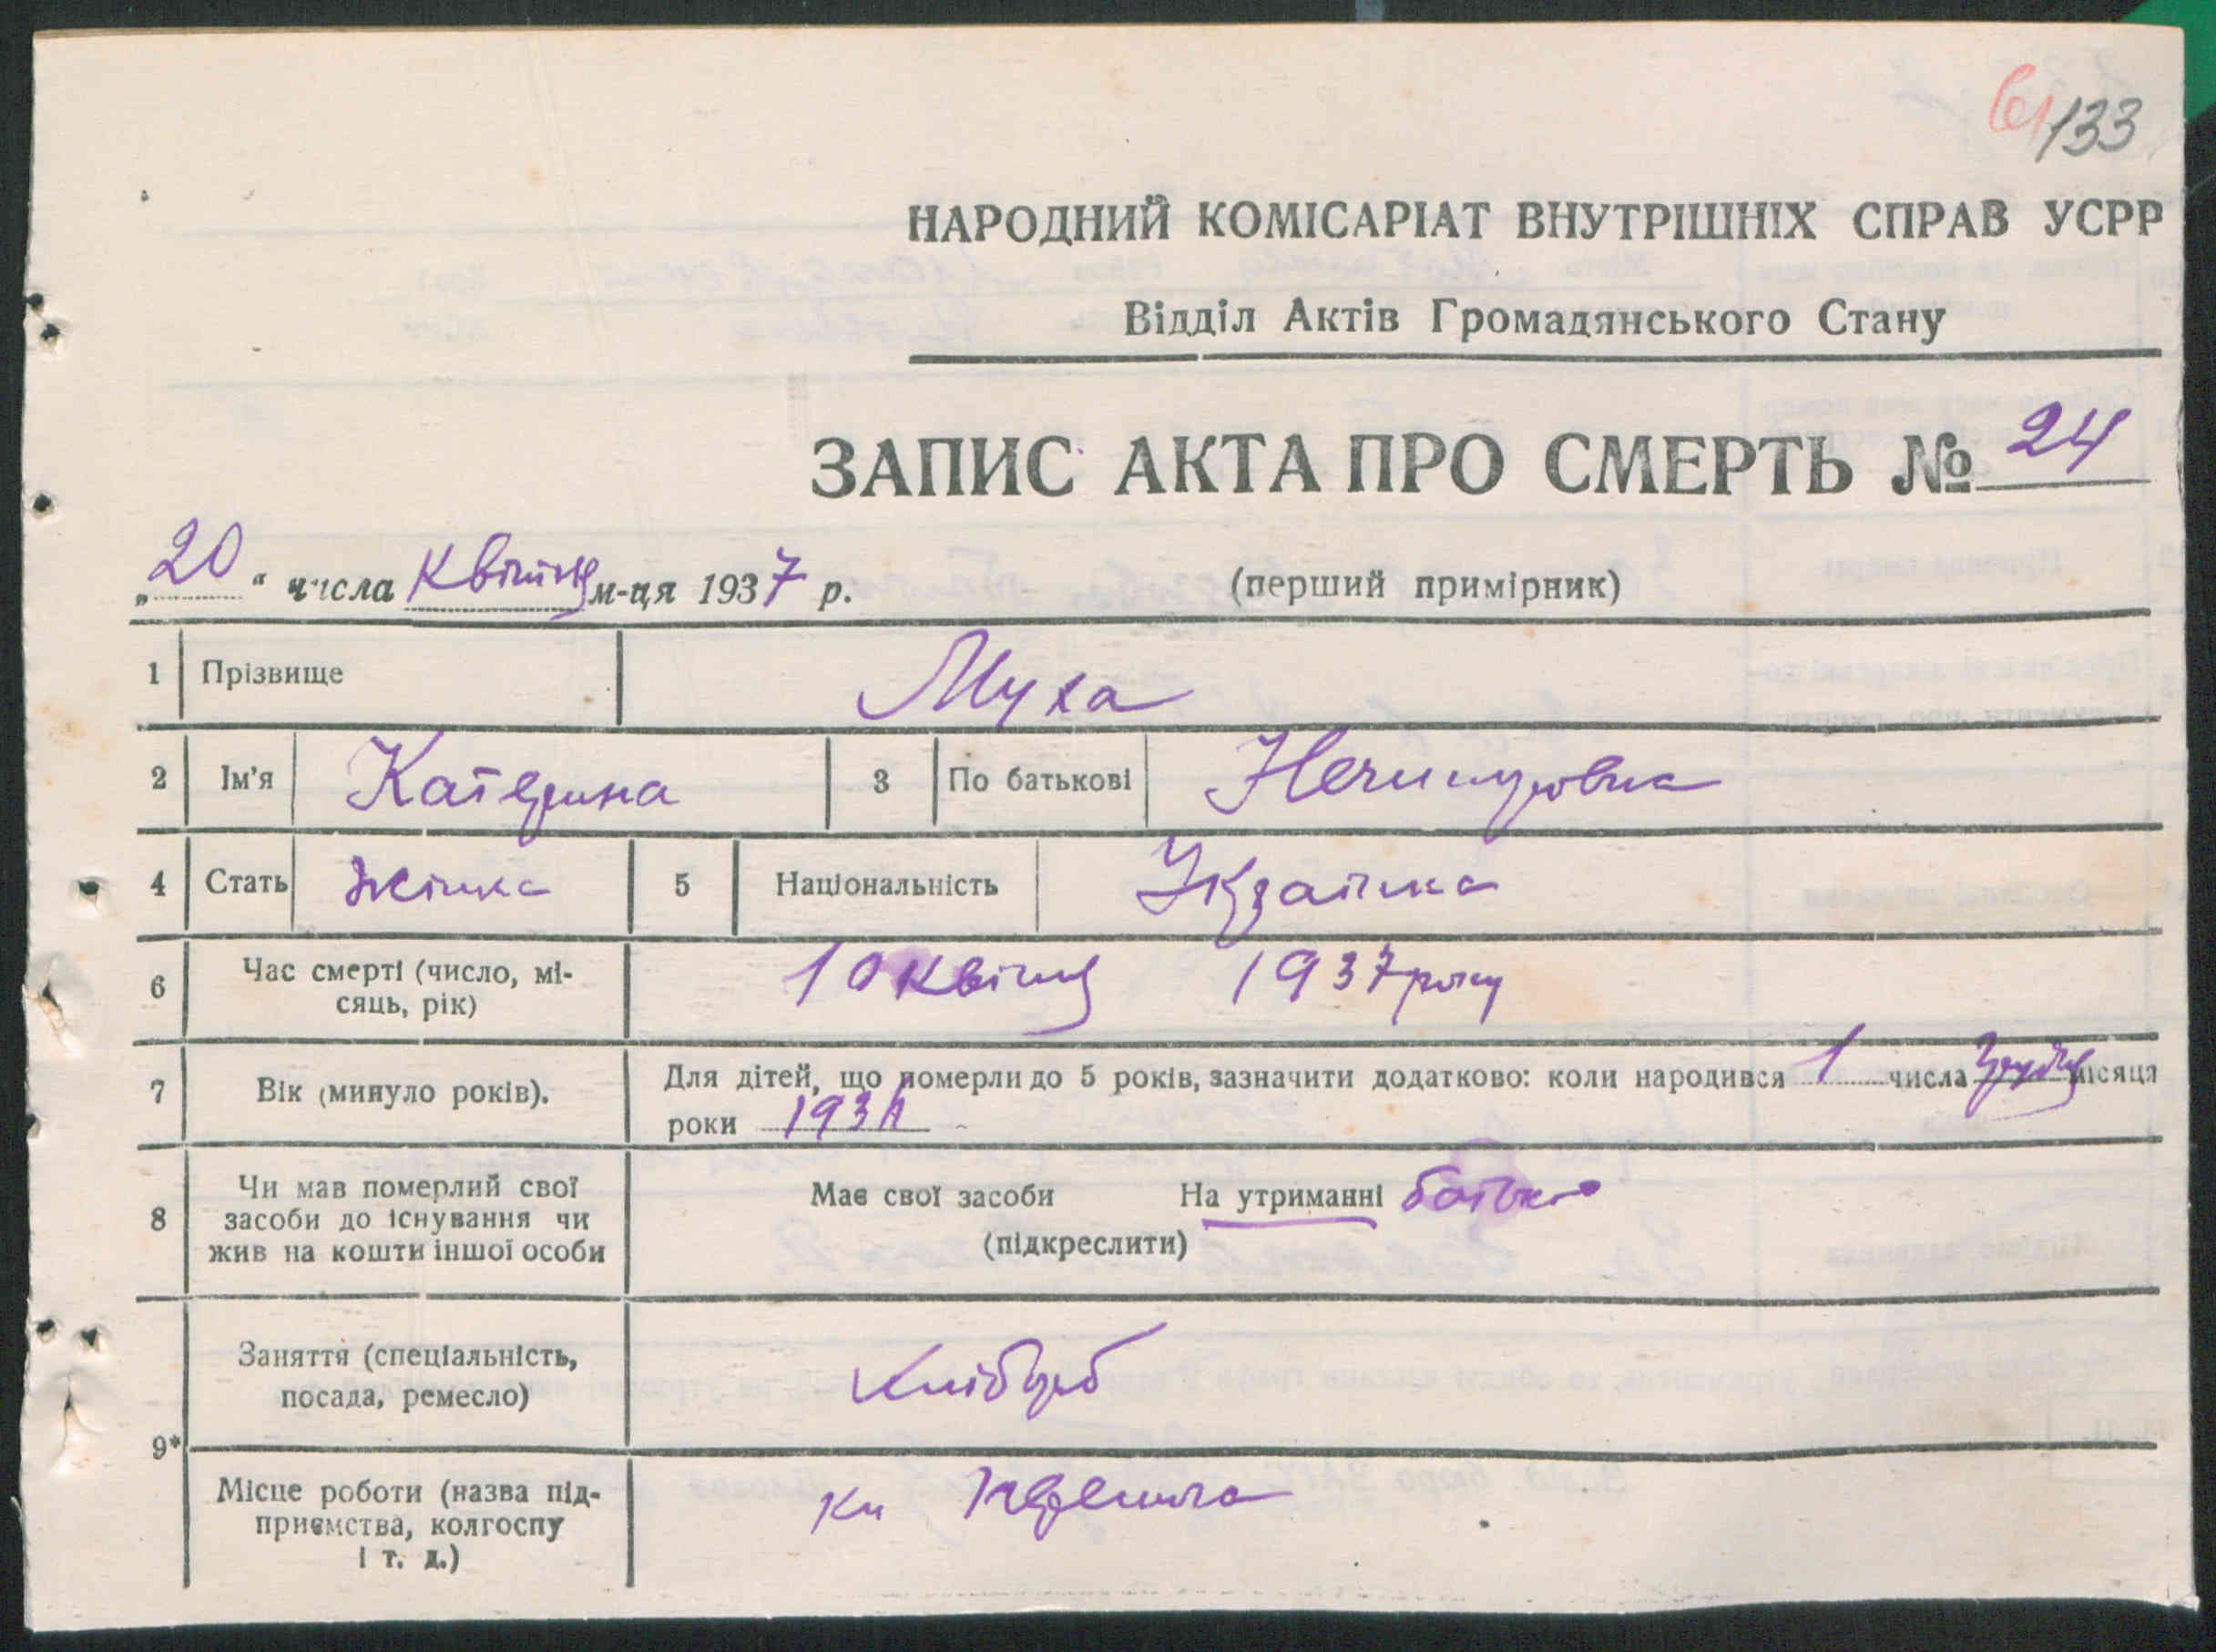 61 133
НАРОДНИЙ КОМІСАРІАТ ВНУТРІШНІХ СПРАВ УСРР
Відділ Актів Громадянського Стану
ЗАПИС АКТА ПРО СМЕРТЬ № 24
„20“ числа Квітня м-ця 1937 р. (перший примірник)
1 Прізвище Муха
2 Ім'я Катерина 3 По батькові Нечипоровна
4 Стать жінка 5 Національність Українка
6 Час смерті (число, мі-
сяць, рік) 10 квітня 1937 року
7 Вік (минуло років). Для дітей, що померли до 5 років, зазначити додатково: коли народився 1 числа Грудня місяця
роки 193
8 Чи мав померлий свої
засоби до існування чи
жив на кошти іншої особи
Має свої засоби На утриманні батька
(підкреслити)
Заняття (спеціальність,
посада, ремесло) Хлібороб
9*
Місце роботи (назва під-
приємства, колгоспу
і т. д.)